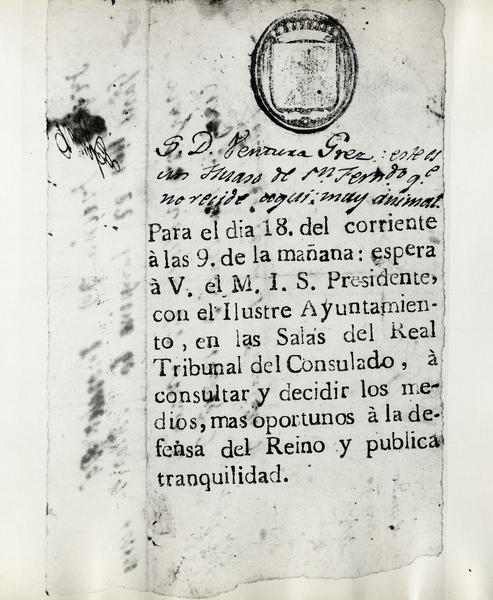 S. D. Ventura Grez: este es
un Huaso de Sn Ferndo qe
no recide aqui: muy animal.
Para el dia 18. del corriente
à las 9. de la mañana: espera
à V. el M. I. S. Presidente,
con el Ilustre Ayuntamien-
to, en las Salas del Real
Tribunal del Consulado, à
consultar y decidir los me-
dios, mas oportunos à la de-
fensa del Reino y publica
tranquilidad.